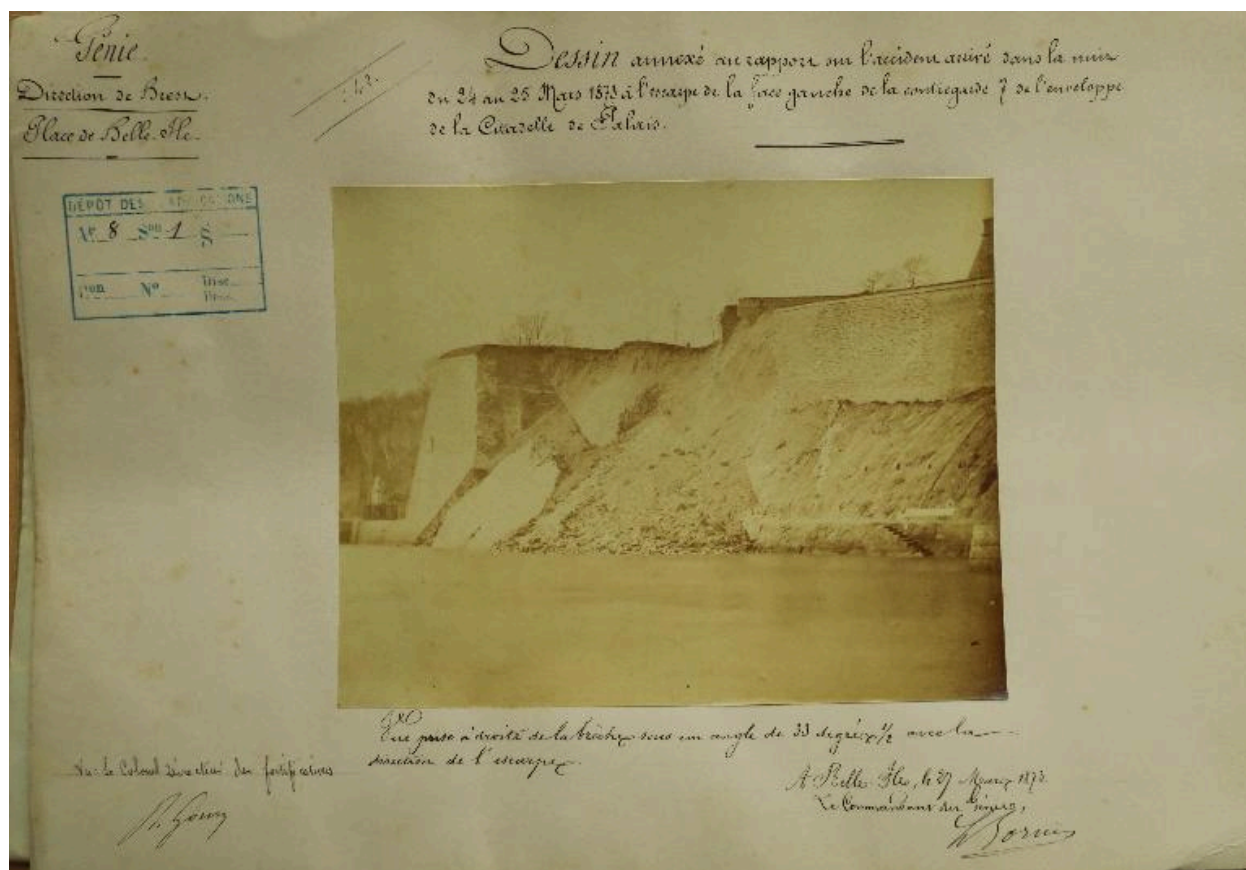 Génie.
Direction de Brest.
Place de Belle-Ile.
Dessin annexé au rapport sur l'accident arrivé dans la nuit
du 24 au 25 Mars 1873 à l'escarpe de la face gauche de la contregarde 7 de l'enveloppe
de la Citadelle de Palais.
DÉPÔT DES
Ar 8 Son 1 §
Nº
Vue prise à droite de la brèche sous un angle de 33 degrés 1/2 avec la
direction de l'escarpe.
Vu: le Colonel Directeur des fortifications
A Belle-Ile, le 27 Mars 1873.
Le Commandant du Génie,